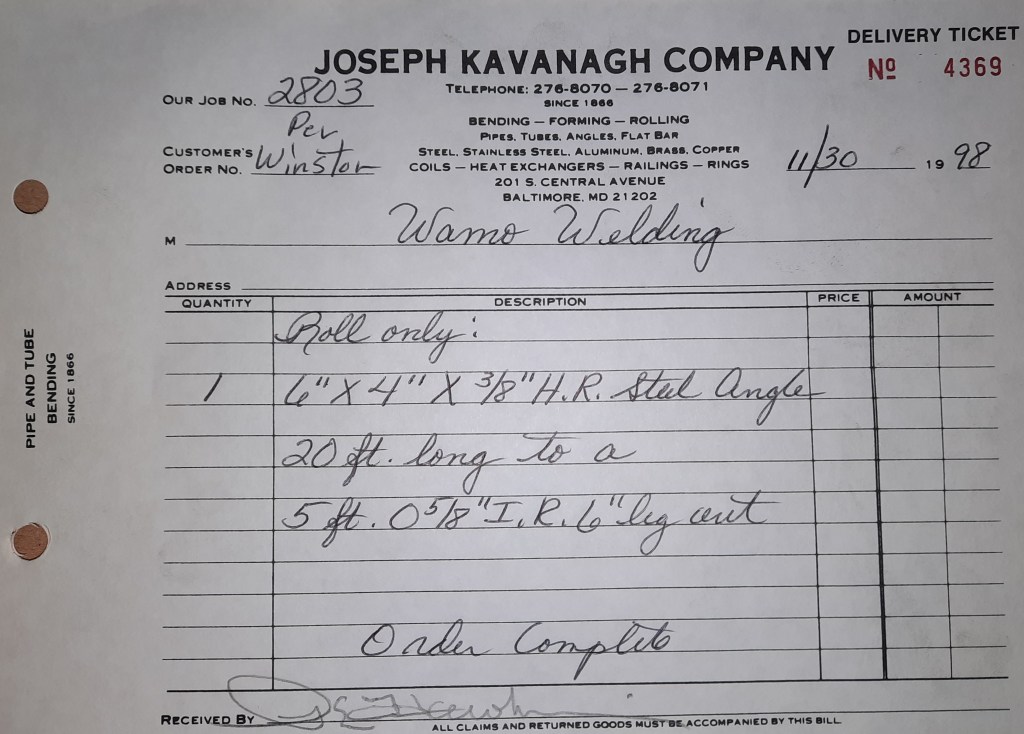 DELIVERY TICKET
JOSEPH KAVANAGH COMPANY
Nº 4369
TELEPHONE: 276-8070 — 276-8071
SINCE 1866
OUR JOB NO. 2803
BENDING — FORMING — ROLLING
PIPES, TUBES, ANGLES, FLAT BAR
STEEL, STAINLESS STEEL, ALUMINUM, BRASS, COPPER
COILS — HEAT EXCHANGERS — RAILINGS — RINGS
201 S. CENTRAL AVENUE
BALTIMORE, MD 21202
Per
CUSTOMER'S
ORDER NO. Winston
11/30 19 98
M Wamo Welding
ADDRESS
QUANTITY DESCRIPTION PRICE AMOUNT
Roll only:
1 6" X 4" X 3/8" H.R. Steel Angle
20 ft. long to a
5 ft. 0 5/8" I.R. 6" leg out
Order Complete
RECEIVED BY
ALL CLAIMS AND RETURNED GOODS MUST BE ACCOMPANIED BY THIS BILL.
PIPE AND TUBE
BENDING
SINCE 1866